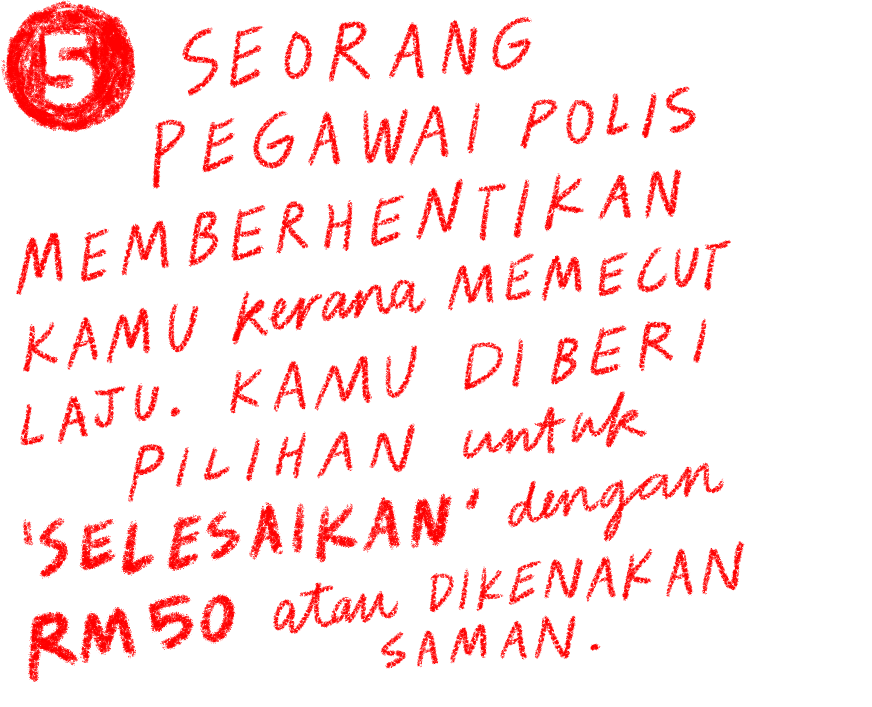 5 SEORANG
PEGAWAI POLIS
MEMBERHENTIKAN
KAMU kerana MEMECUT
LAJU. KAMU DIBERI
PILIHAN untuk
'SELESAIKAN' dengan
RM50 atau DIKENAKAN
SAMAN.